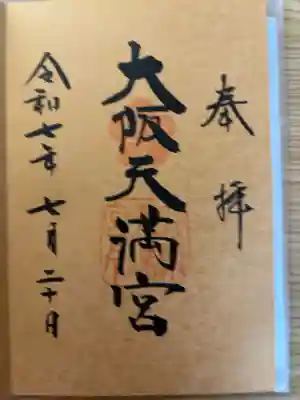 奉拝
大阪天満宮
令和七年七月二十日